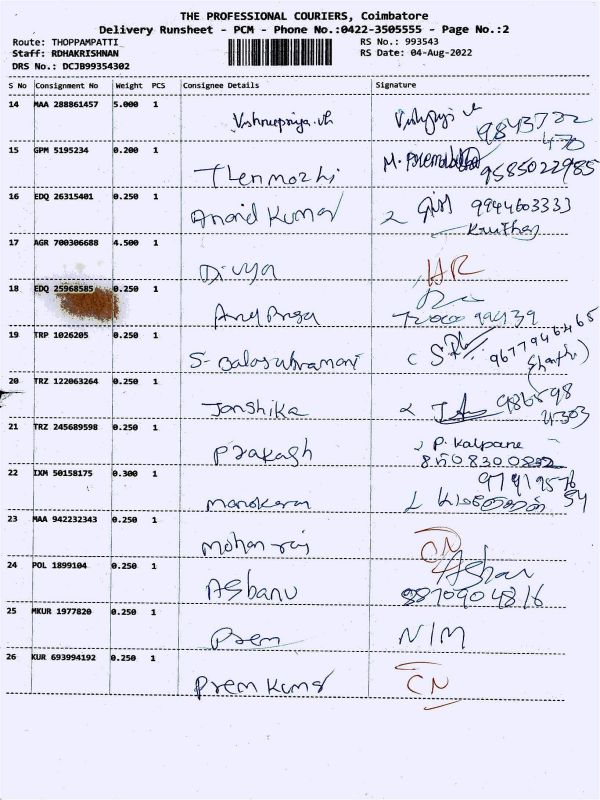 THE PROFESSIONAL COURIERS, Coimbatore
Delivery Runsheet - PCM - Phone No.:0422-3505555 - Page No.:2
Route: THOPPAMPATTI
RS No.: 993543
Staff: RDHAKRISHNAN
RS Date: 04-Aug-2022
DRS No.: DCJB99354302
S No Consignment No Weight PCS Consignee Details Signature
14 MAA 288861457 5.000 1
Vishnupriya.
15 GPM 5195234 0.200 1
Thenmozhi M. 9585022985
16 EDQ 26315401 0.250 1
Anand Kumar 9944603333
17 AGR 700306688 4.500 1
Divya
18 EDQ 25968585 0.250 1
19 TRP 1026205 0.250 1
S- Balasubramani
20 TRZ 122063264 0.250 1
Janshika
21 TRZ 245689598 0.250 1
Prakash P. Kalpane
22 IXM 50158175 0.300 1
Manokaran
23 MAA 942232343 0.250 1
Mohan raj CN
24 POL 1899104 0.250 1
Asbanu
25 MKUR 1977820 0.250 1
Prem N/M
26 KUR 693994192 0.250 1
Prem Kumar CN